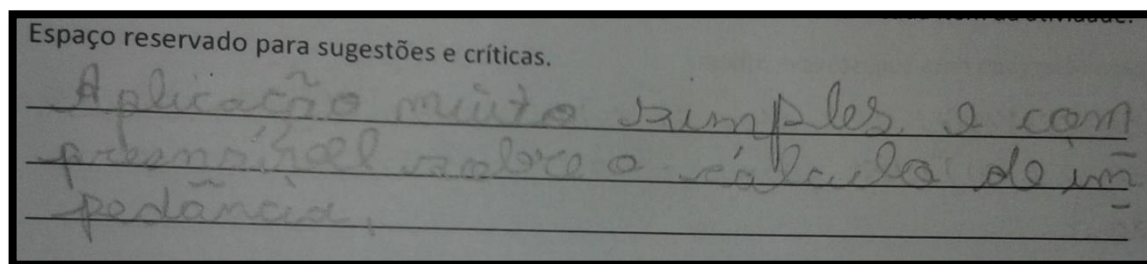 Espaço reservado para sugestões e críticas.
Aplicação muito simples e com
preensível sobre o cálculo de im
pedância.